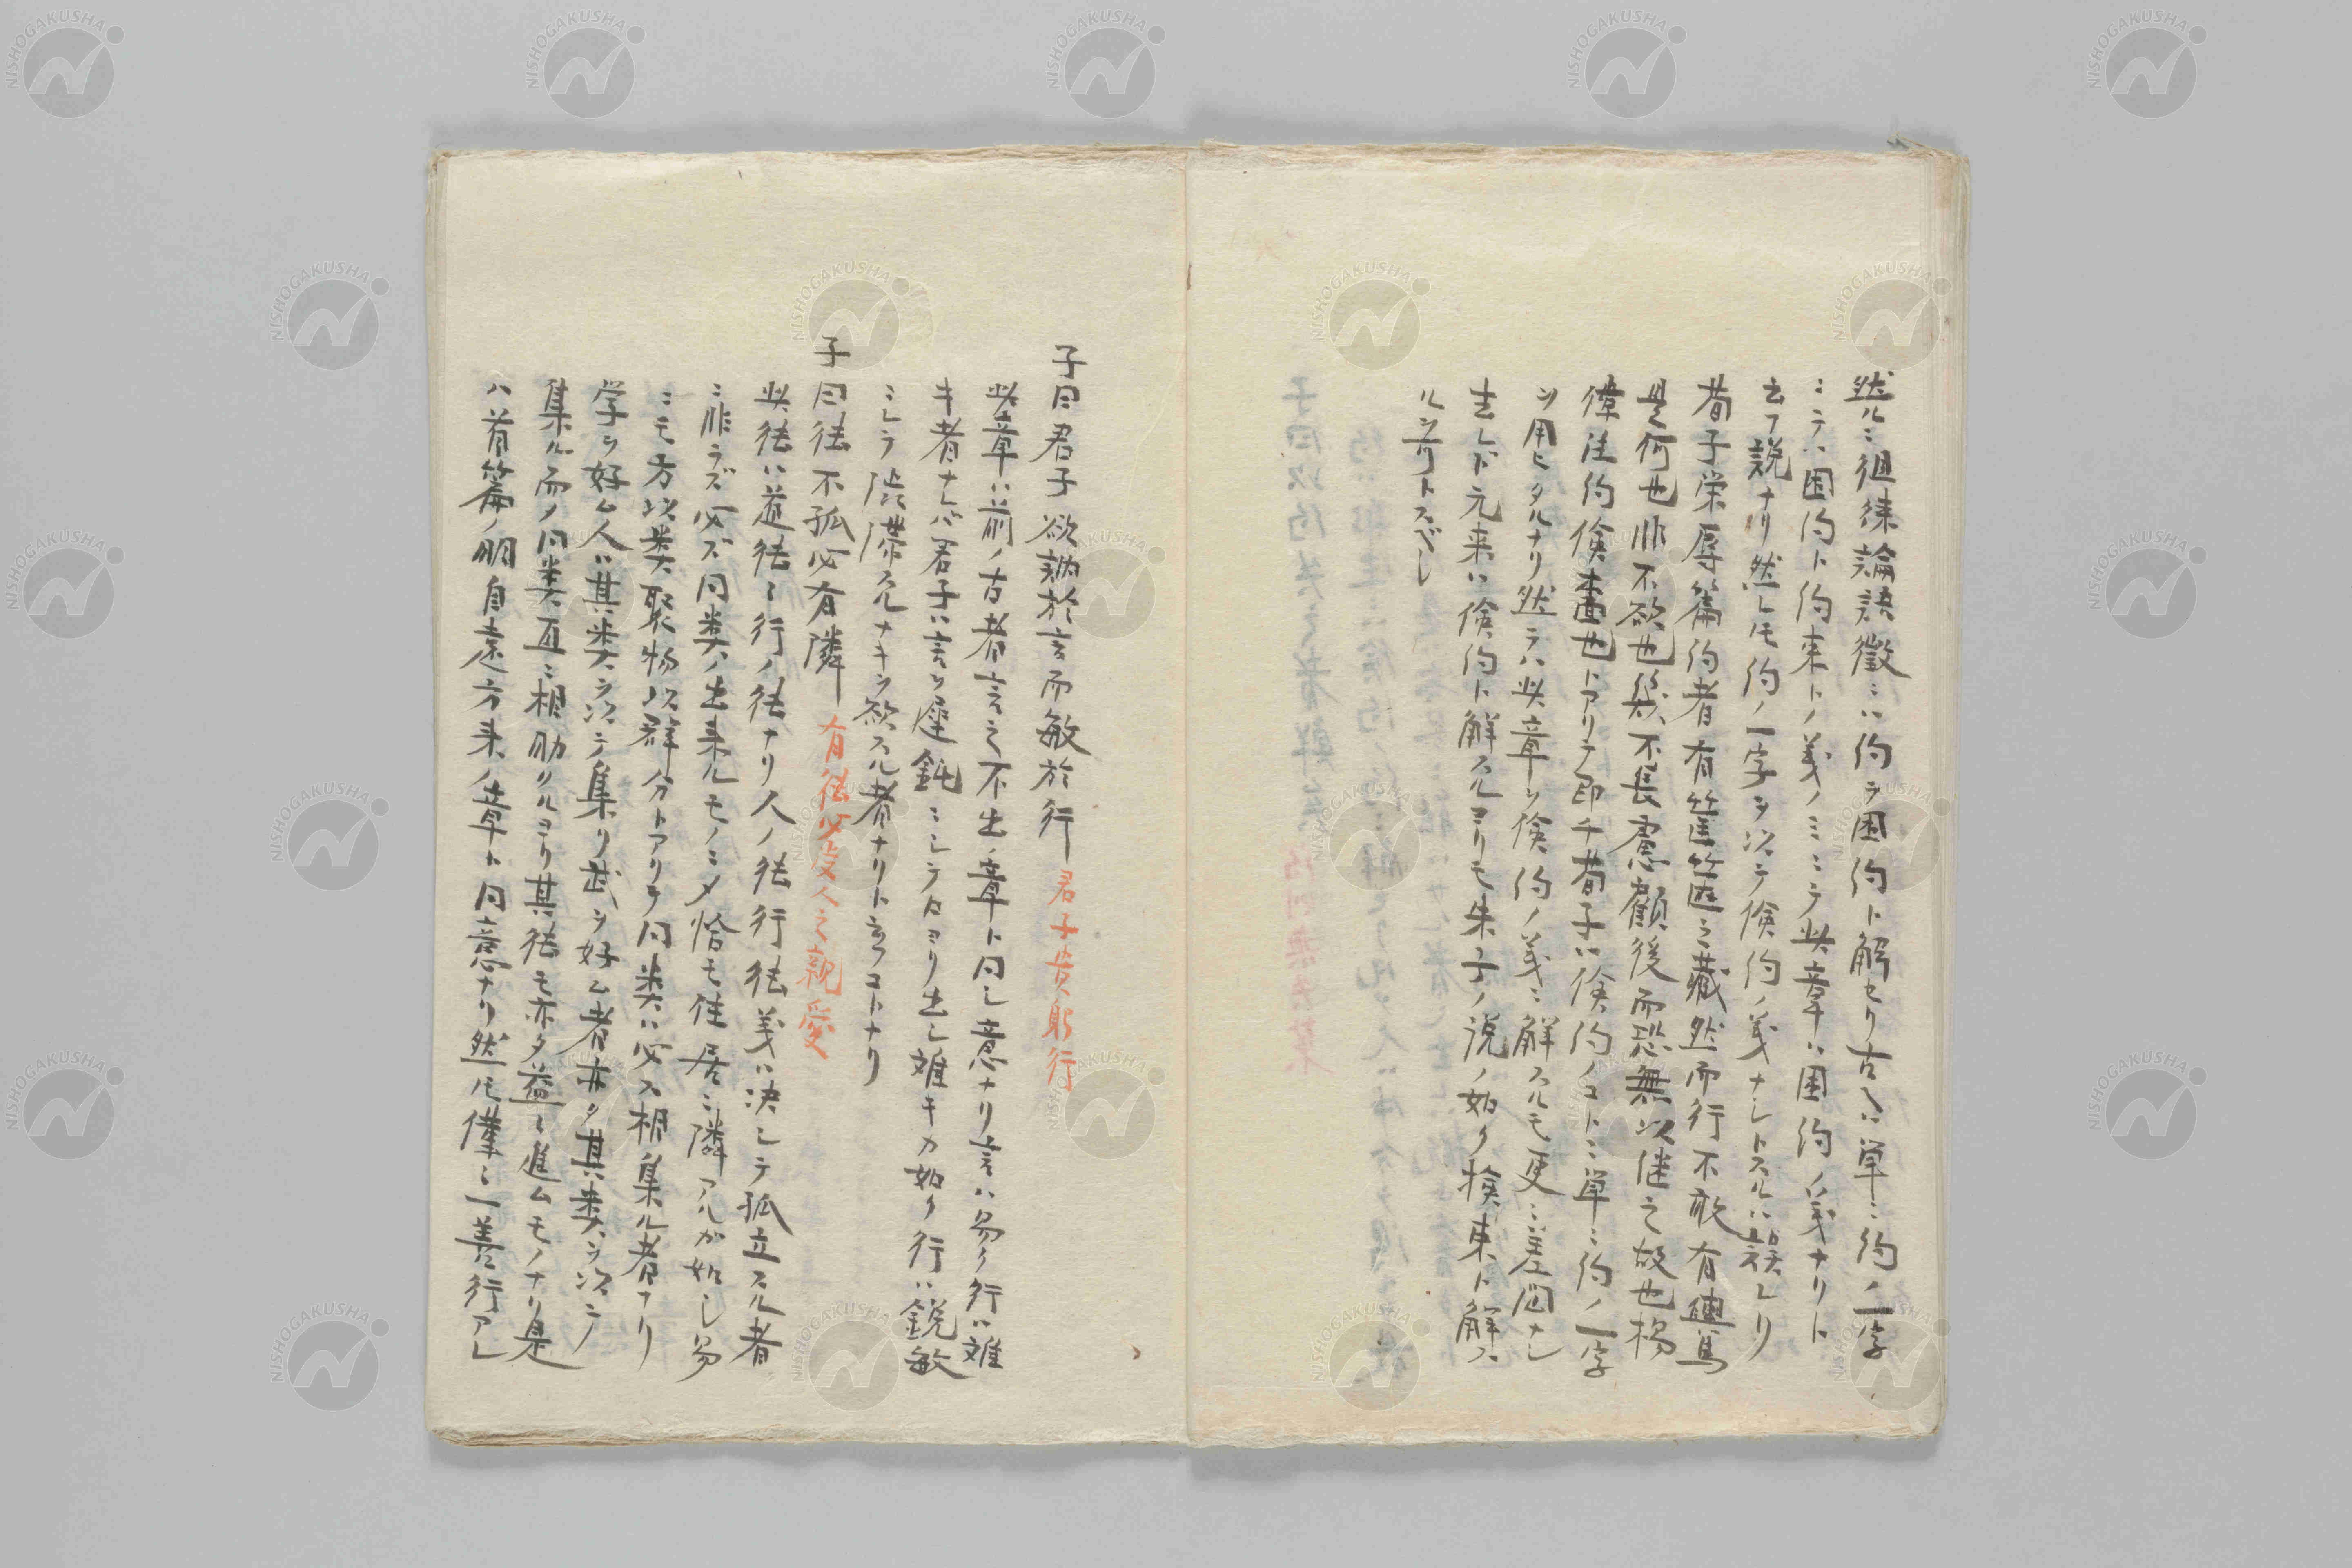 然ルニ徂徠論語徴ニハ約ヲ困約ト解セリ古ヘハ単ニ約ノ一字
ニテハ困約ト約束トノ義ノミニテ此章ハ困約ノ義ナリト
云フ説ナリ然レモ約ノ一字ヲ以テ倹約ノ義ナシトスルハ誤レリ
荀子栄辱篇約者有筐篋之蔵然而行不敢有輿馬
是何也非不欲也幾不長慮顧後而恐無以継之故也楊
倞注約倹嗇也トアリテ即チ荀子ハ倹約ノコトニ単ニ約ノ一字
ヲ用ヒタルナリ然ラハ此章ヲ倹約ノ義ニ解スルモ更ニ差閊ナシ
去レド元来ハ倹約ト解スルヨリモ朱子ノ説ノ如ク検束ト解ス
ルヲ可トスベし
子曰君子欲訥於言而敏於行 君子貴躬行
此章ハ前ノ古者言之不出章ト同し意ナリ言ハ易ク行ハ難
キ者ナレバ君子ハ言ヲ遅鈍ニシテ口ヨリ出し難キカ如ク行ハ鋭敏
ニシテ渋滞スルナキヲ欲スル者ナリト云フコトナリ
子曰徳不孤必有隣 有徳必受人之親愛
此徳ハ道徳々行ノ徳ナリ人ノ徳行徳義ハ决シテ孤立スル者
ニ非ラズ必ズ同類ノ出来ルモノニメ恰モ住居ニ隣アルが如し易
ニモ方以類聚物以群分トアリテ同類ハ必ス相集ル者ナリ
学ヲ好ム人ハ其類ヲ以テ集リ武ヲ好ム者亦タ其類ヲ以テ
集ル而ノ同類互ニ相助クルヨリ其徳モ亦タ益々進ムモノナリ是
ハ首篇ノ朋自遠方来ノ章ト同意ナリ然モ僅々一善行アレ
NISHOGAKUSHA